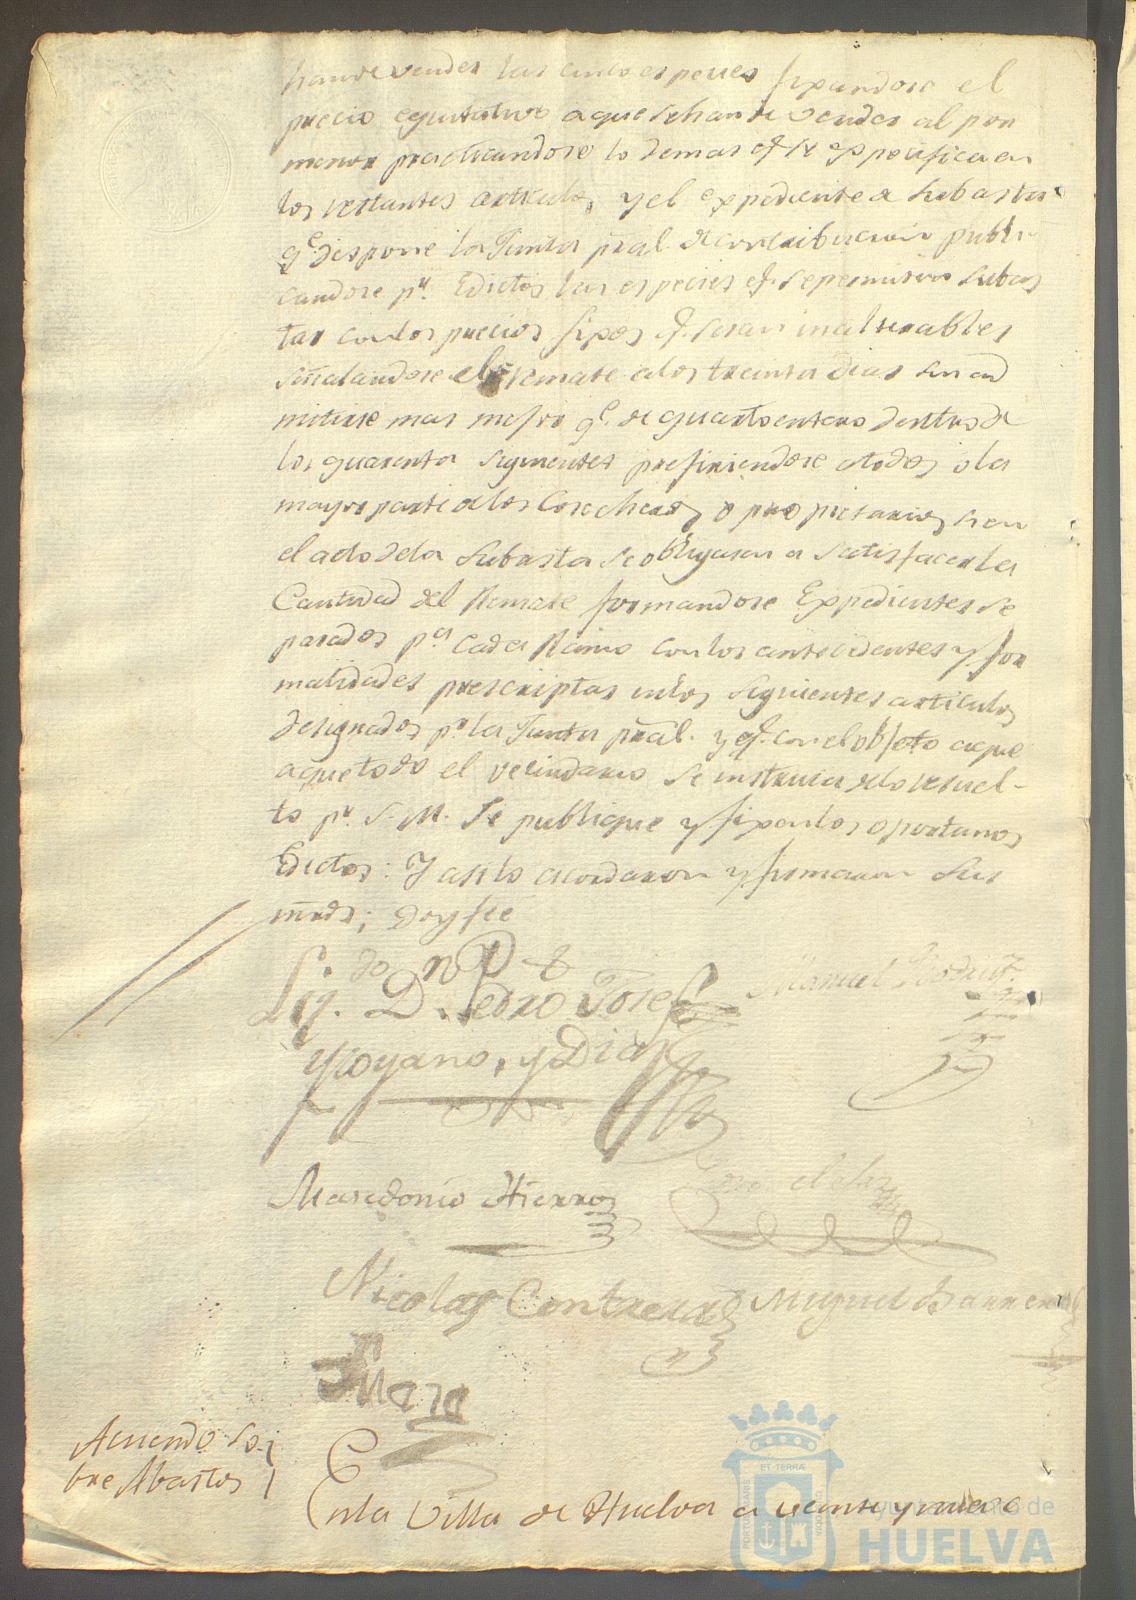 han de vender las cinco especies fixandose el
precio equitativo a que se han de vender al por
menor practicandose lo demas qe. se expecifica en
los restantes articulos, y el expediente de subasta
qe. dispone la Junta pral. de contribucion publi
candose pr. Edictos las especies qe. se permitan subas
tar con los precios fixos qe. seran inalterables
señalandose el remate a los treinta dias sin ad
mitirse mas mejora qe. de quarto entero dentro de
los quarenta siguientes prefiriendose a todos o la
mayor parte de los Cosecheros o propietarios si en
el acto de la Subasta se obligasen a satisfacer la
Cantidad del Remate formandose Expedientes se
parados pa. cada Ramo con los antecedentes y for
malidades prescriptas en los siguientes articulos
designados pr. la Junta pral. y qe. con el objeto de que
aquetodo el vecindario se instruia de lo resuel-
to pr. S. M. se publique y fixen los oportunos
Edictos: Y asi lo acordaron y firmaron sus
mrds; Doy fee
Lizdo. Dn. Pedro Josef
Moyano, y Diaz
Manuel
Masedonio Hierro
Nicolas Contreras Miguel Barrera
Acuerdo so-
bre Abastos
En la Villa de Huelva a veinte y nueve
ET TERRAE
PORTUS MARIS
CUSTODIA
Ayuntamiento de
HUELVA